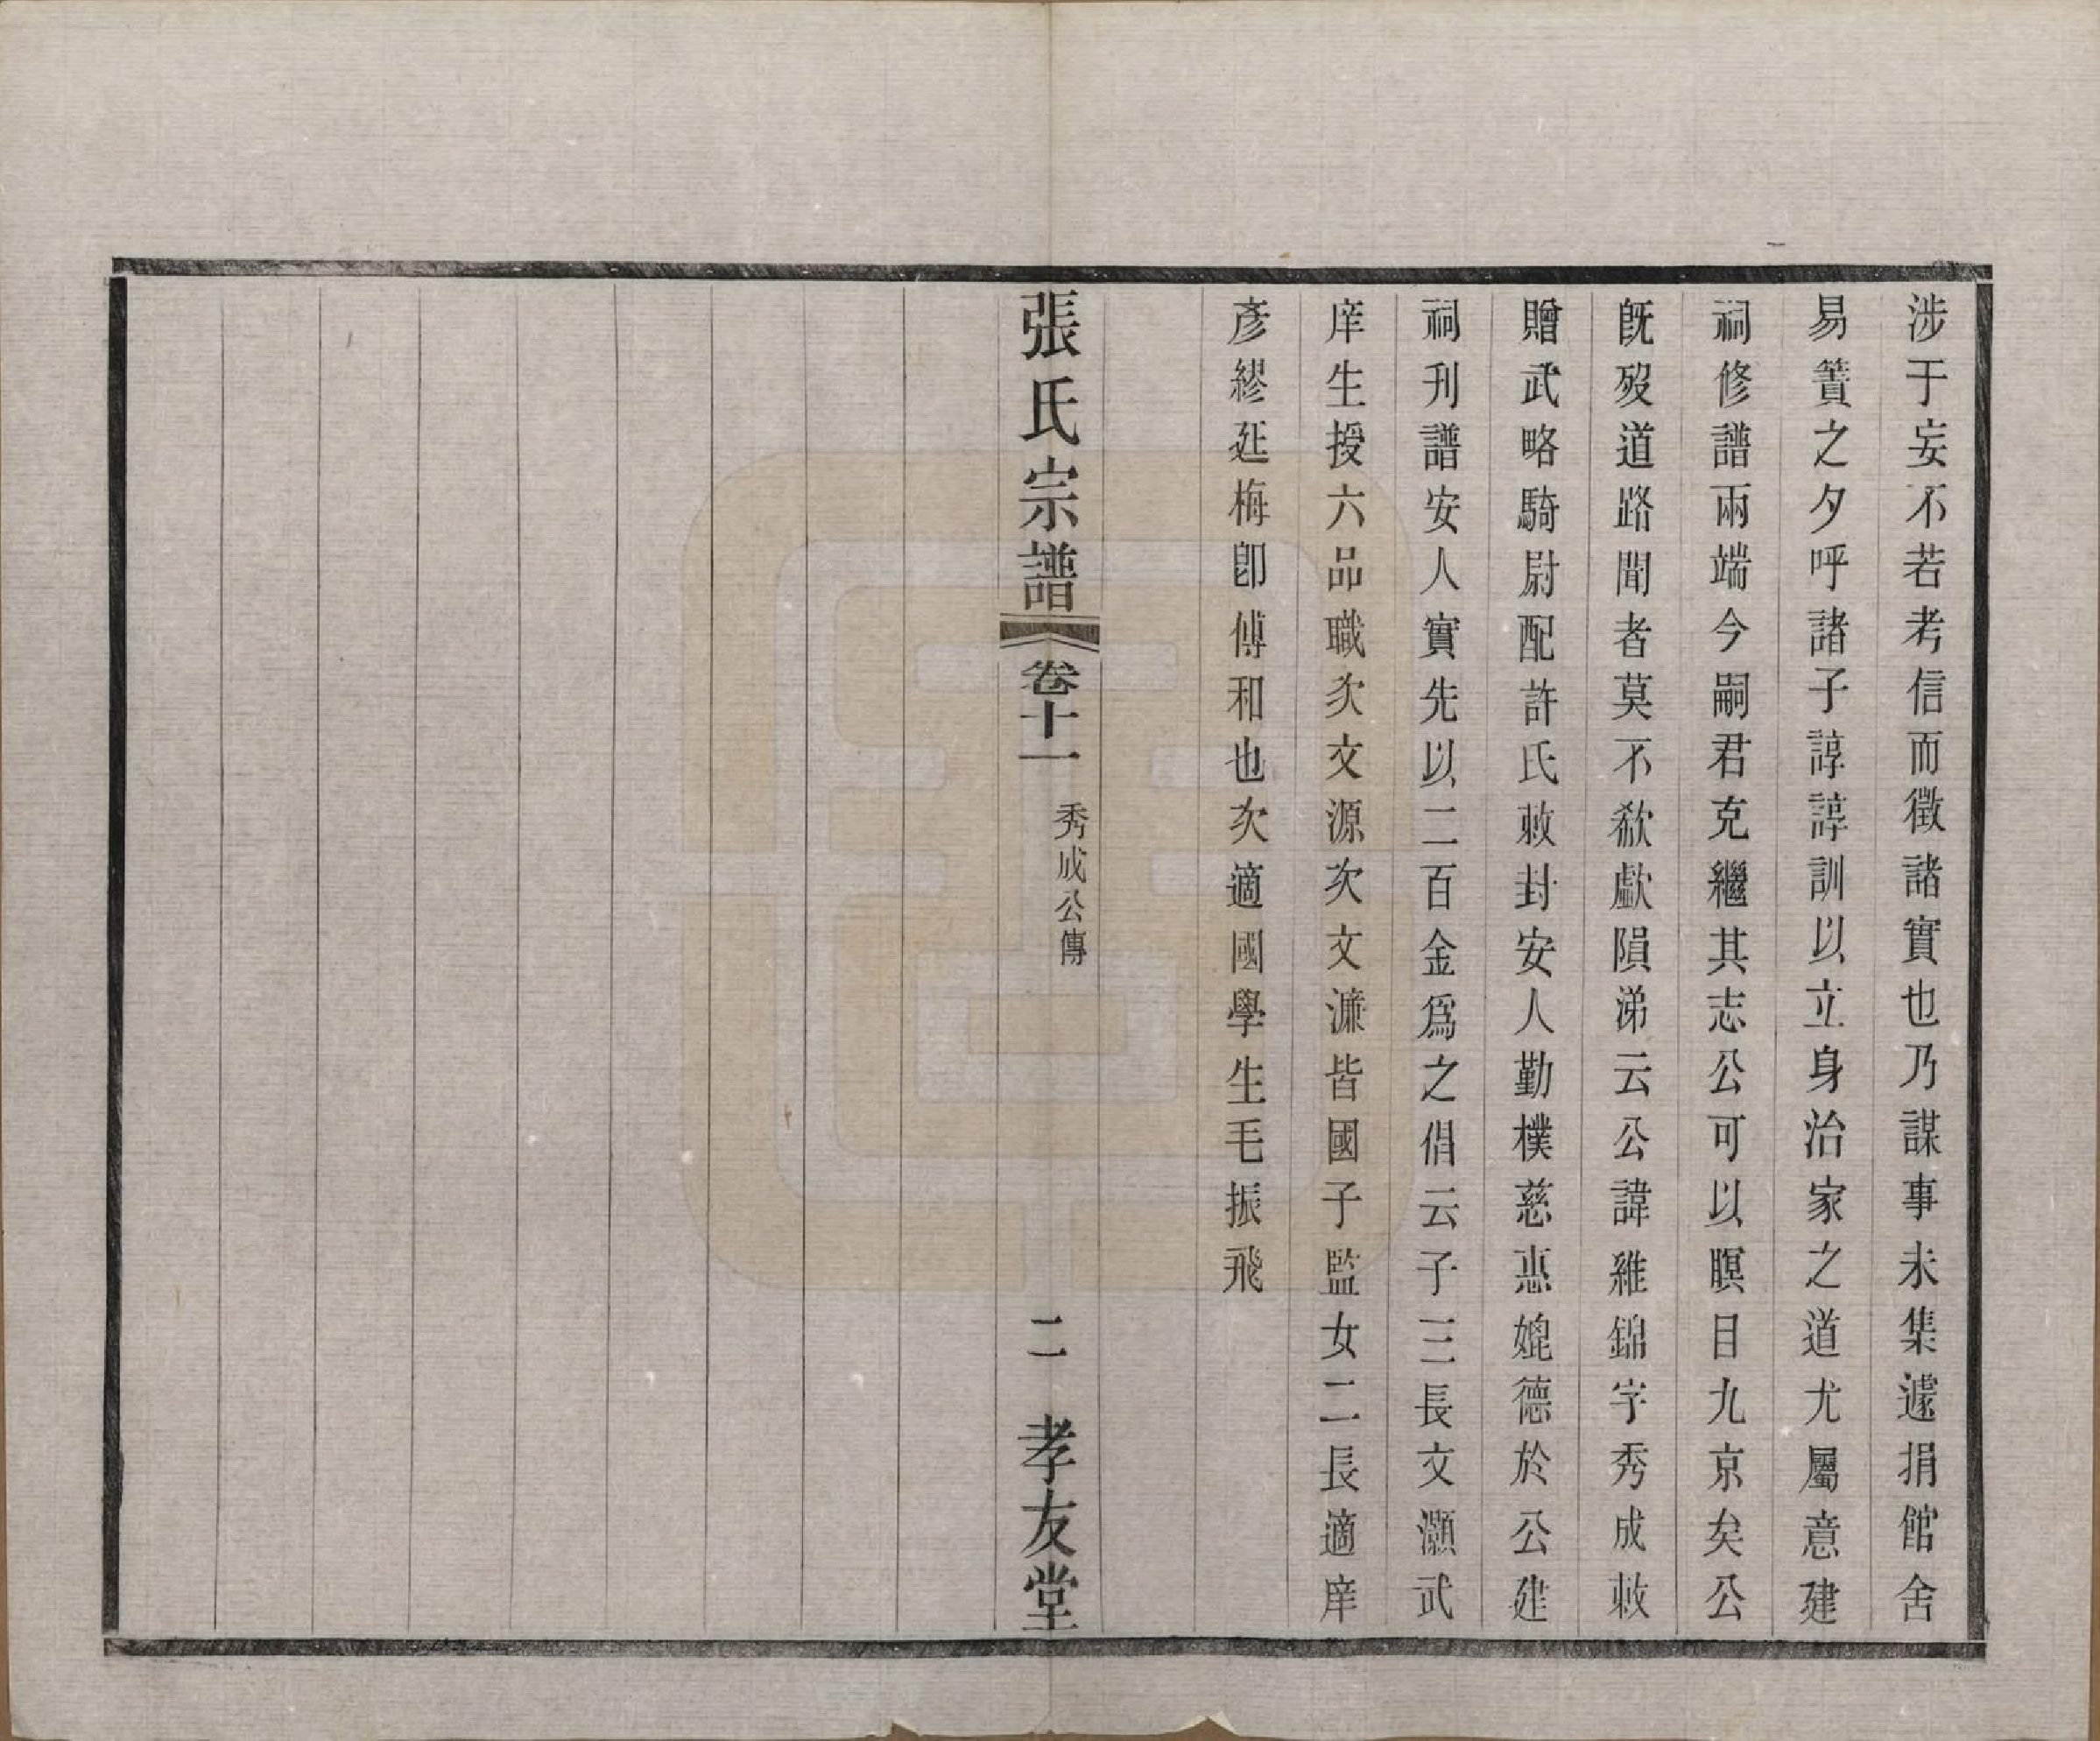 涉于妄不若考信而徵諸實也乃謀事未集遽捐館舍
易簀之夕呼諸子諄諄訓以立身治家之道尤屬意建
祠修譜兩端今嗣君克繼其志公可以瞑目九京矣公
旣歿道路聞者莫不欷歔隕涕云公諱維錦字秀成敕
贈武略騎尉配許氏敕封安人勤樸慈惠媲德於公建
祠刋譜安人實先以二百金爲之倡云子三長文灝武
庠生授六品職次文源次文濂皆國子監女二長適庠
彥繆延梅卽傅和也次適國學生毛振飛
張氏宗譜 卷十一 秀成公傳 二 孝友堂